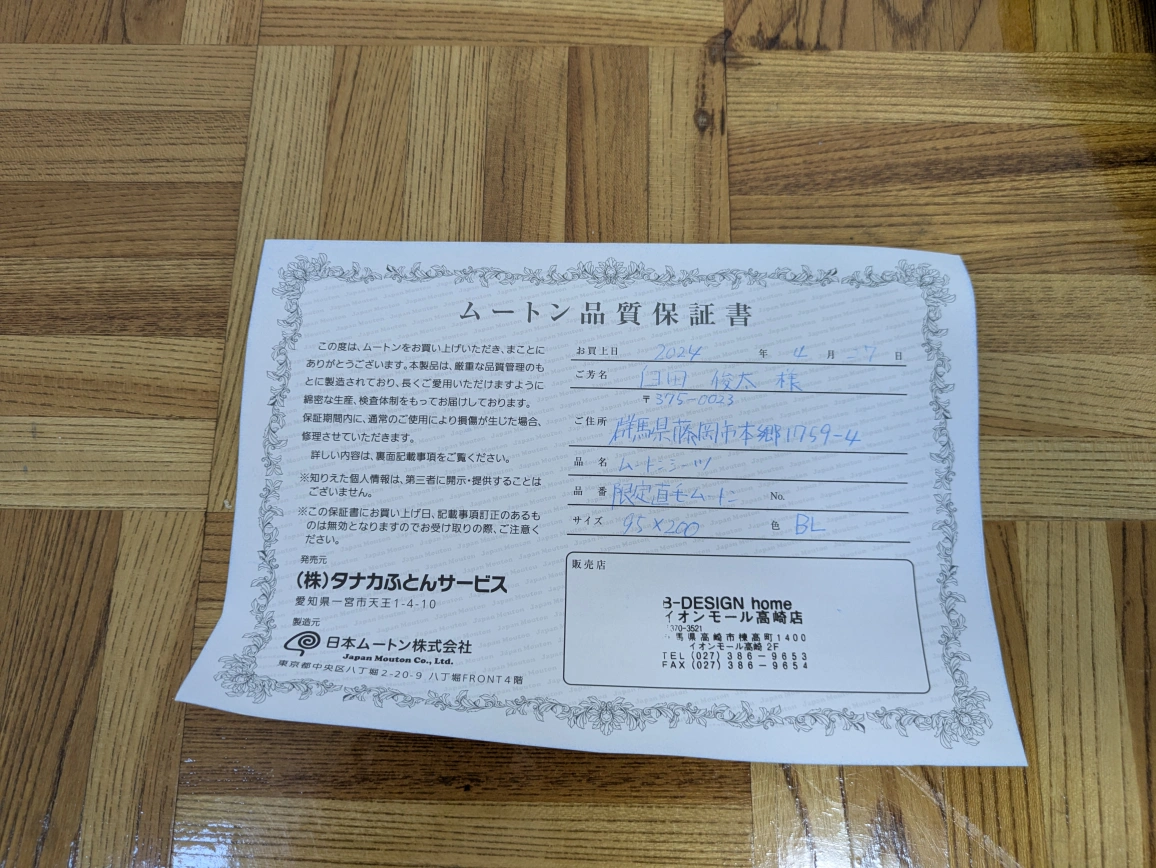 ムートン品質保証書
この度は、ムートンをお買い上げいただき、まことに
ありがとうございます。本製品は、厳重な品質管理のも
とに製造されており、長くご愛用いただけますように
綿密な生産、検査体制をもってお届けしております。
保証期間内に、通常のご使用により損傷が生じた場合、
修理させていただきます。
詳しい内容は、裏面記載事項をご覧ください。
※知りえた個人情報は、第三者に開示・提供することは
ございません。
※この保証書にお買い上げ日、記載事項訂正のあるも
のは無効となりますのでお受け取りの際、ご注意く
ださい。
発売元
(株)タナカふとんサービス
愛知県一宮市天王1-4-10
製造元
日本ムートン株式会社
Japan Mouton Co., Ltd.
東京都中央区八丁堀2-20-9 八丁堀FRONT4階
お買上日 2024 年 4 月 27 日
ご芳名 田 俊太 様
〒375-0023
ご住所 群馬県藤岡市本郷1759-4
品名 ムートンシーツ
品番 限定直毛ムートン No.
サイズ 95×200 色 BL
販売店
B-DESIGN home
イオンモール高崎店
370-3521
馬県高崎市棟高町1400
イオンモール高崎 2F
TEL (027) 386-9653
FAX (027) 386-9654